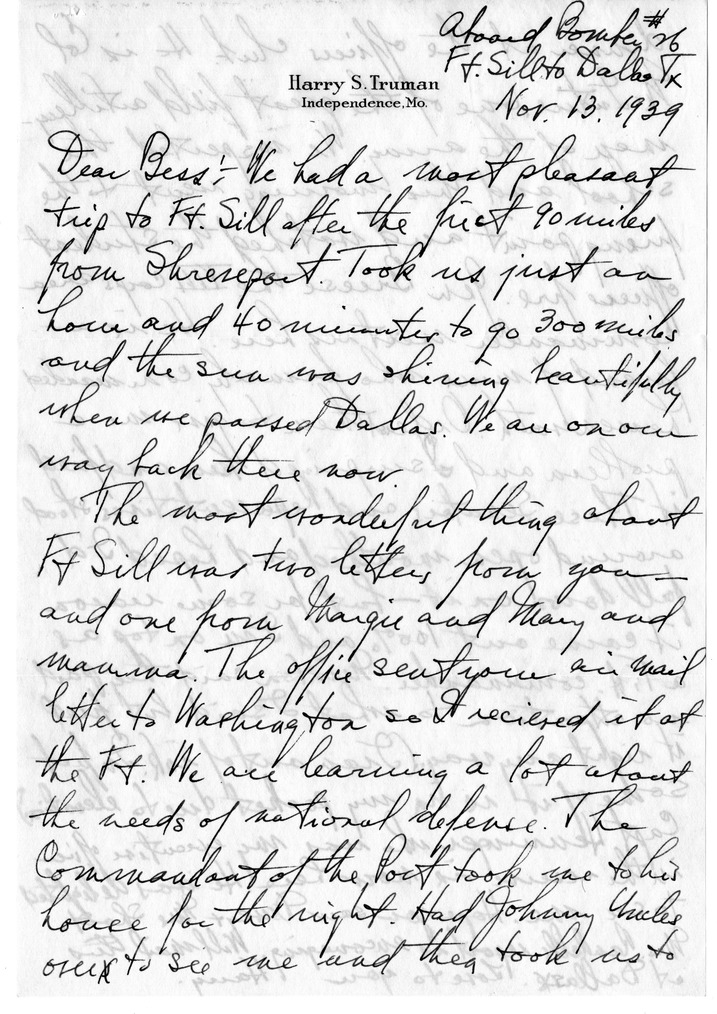 Aboard Bomber #26
Ft. Sill to Dallas Tx
Nov. 13, 1939
Harry S. Truman
Independence, Mo.
Dear Bess:- We had a most pleasant
trip to Ft. Sill after the first 90 miles
from Shreveport. Took us just an
hour and 40 minutes to go 300 miles
and the sun was shining beautifully
when we passed Dallas. We are on our
way back there now.
The most wonderful thing about
Ft Sill was two letters from you—
and one from Margie and Mary and
mamma. The office sent your air mail
letter to Washington so I recieved it at
the Ft. We are learning a lot about
the needs of national defense. The
Commandant of the Post took me to his
house for the night. Had Johnny Miles
over to see me and then took us to